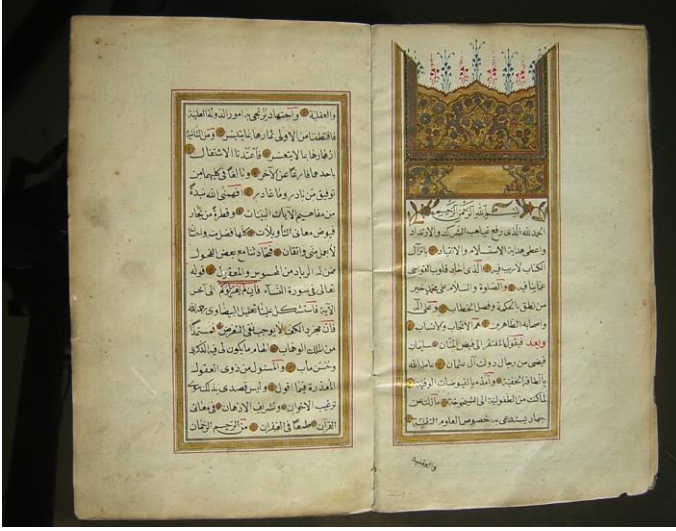 بسم الله الرحمن الرحيم
الحمد لله الذى رفع غياهب الشرك والارتداد
واعطى هداية الاستسلام والانقياد بانزال
الكتاب لاريب فيه الذى احاد قلوب القواسى
عما ينافيه والصلوة والسلام على محمد خير
من نطق بالحكمة وفصل الخطاب وعلى آله
واصحابه الطاهرين هم الانجاب والانساب
وبعد فيقول المفتقر الى فيض المنان سليمان
فيضى من رجال دولت آل عثمان عامله الله
بالطافه الخفية وامده بالفيوضات الوفية
لما كنت من الطفولية الى الشيخوخة مازلت عن
جهاد يستدعى به خصوص العلوم النقلية
والعقلية
والعقلية واجتهاد يرتجى به امور الدولة العلية
فاقتطفنا من الاولى ثمارها بما يتيسر ومن الثانية
ازهارها بالايتعسر فاغتدنا الاشتغال
باحدهما فارغا عن الآخر ونا الفا فى كليهما من
توفيق من نادر وما غادر ففهمنى الله نبذة
من مفاهيم الآيات البينات وقطرة من بحار
فيوض معانى التأويلات كلها فضل منه وانا
لاجهل منى واتقان فتحادثنا مع بعض الفحول
ممن له الارتياد من المحسوس والمعقول قوله
تعالى فى سورة النساء فان لم يعتزلوكم الى آخر
الآية فاستشكل علينا تعليل البيضاوى رحمه الله
فان مجرد الكف لا يوجب نفى التعرض فحسبنا
من الملك الوهاب الهام ما يكون لى فيه الذكرى
وحسن مآب والمسئول من ذوى العقول
المعذرة فيما اقول وليس قصدى بذلك سوى
ترغيب الاخوان وتشريف الاذهان فى معانى
القرآن طمعا فى الغفران من الرحيم الرحمان